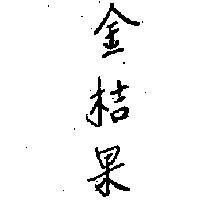 金桔果